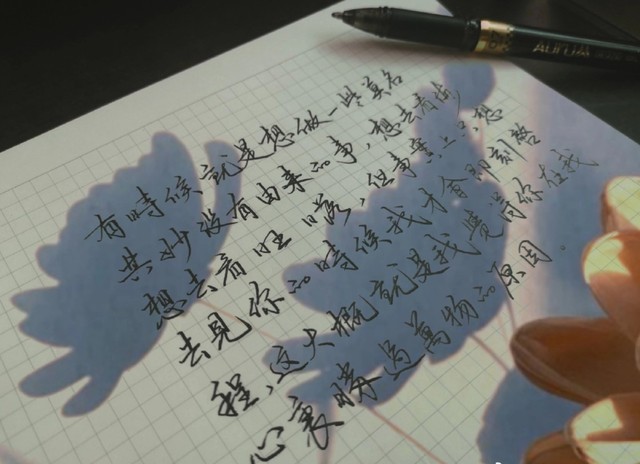 有時候就是想做一些莫名
其妙没有由来的事，想去看
想去看落，但事實上只想
去見你的時候我才會即刻啓
程，这大概就是我覺得你在我
心裏勝過萬物的原因